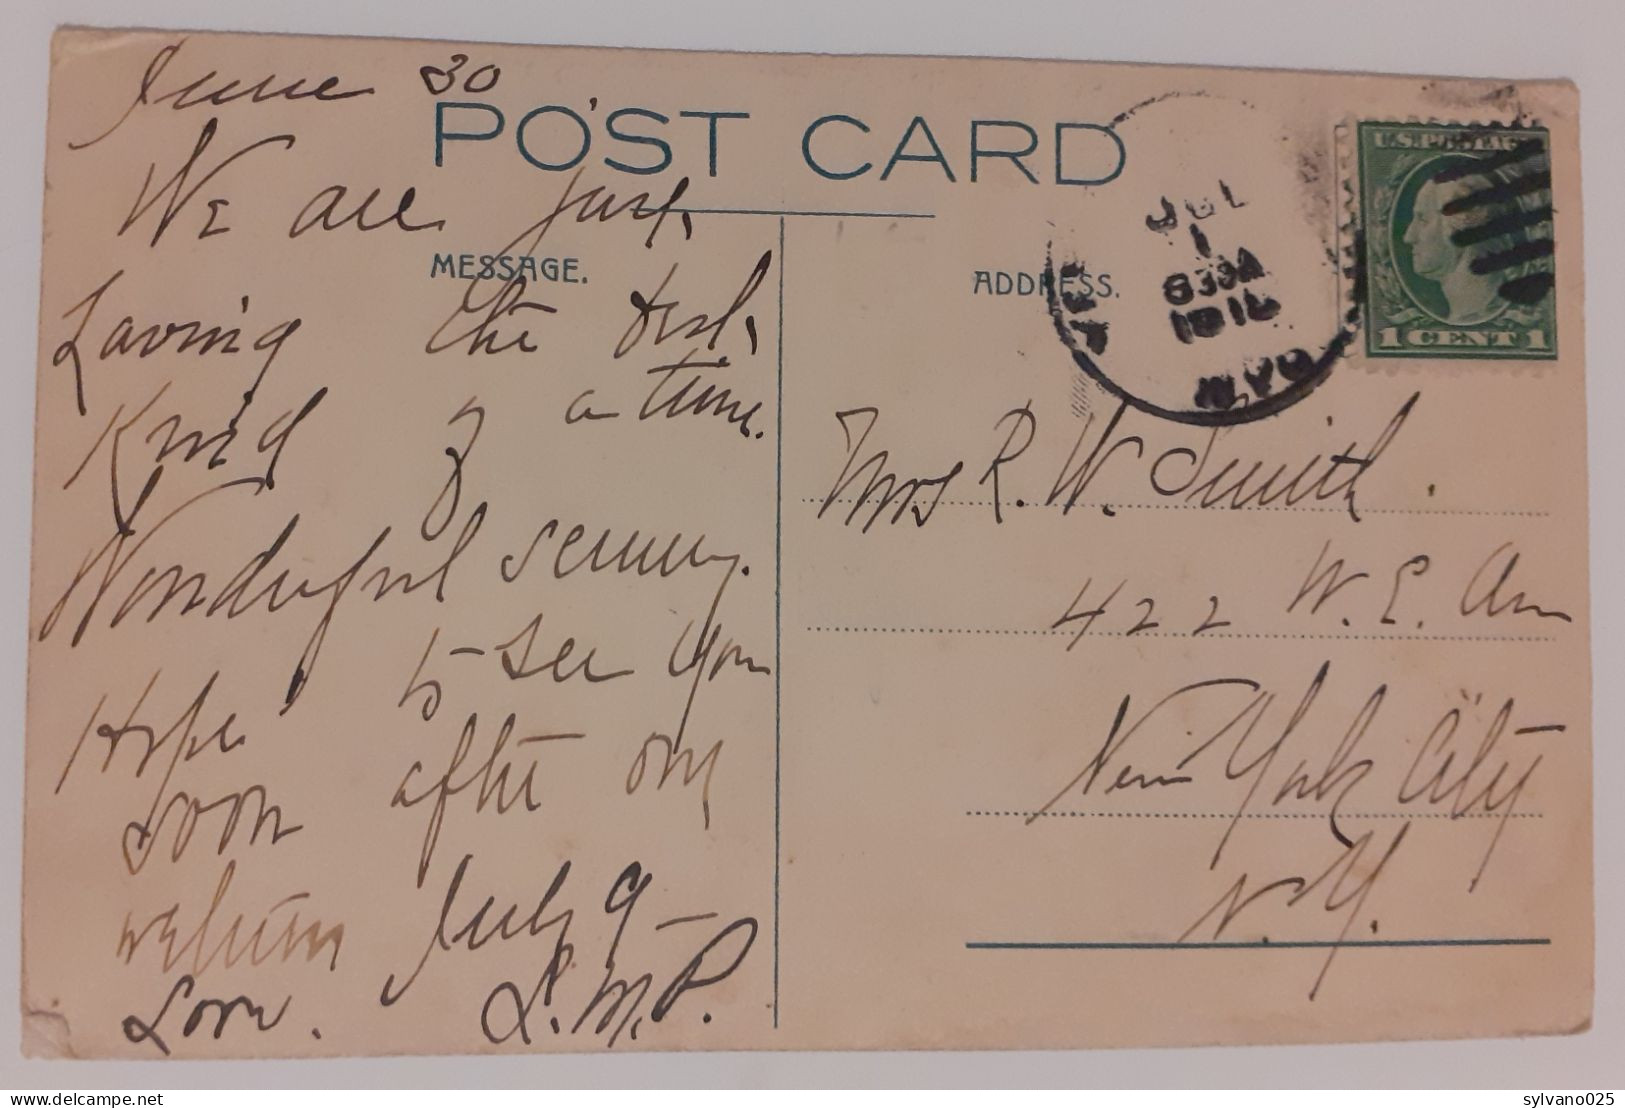 June 30
POST CARD
We are just
MESSAGE.
having the best
kind of a time.
Wonderful scenery.
Hope to see you
soon after my
return July 9 –
Love. L.M.P.
ADDRESS.
JUL
1
830A
CAN
U.S. POSTAGE
1 CENT 1
Mrs R. W. Smith.
422 W. E. Ave
New York City
N.Y.
delcampe.net
sylvano025